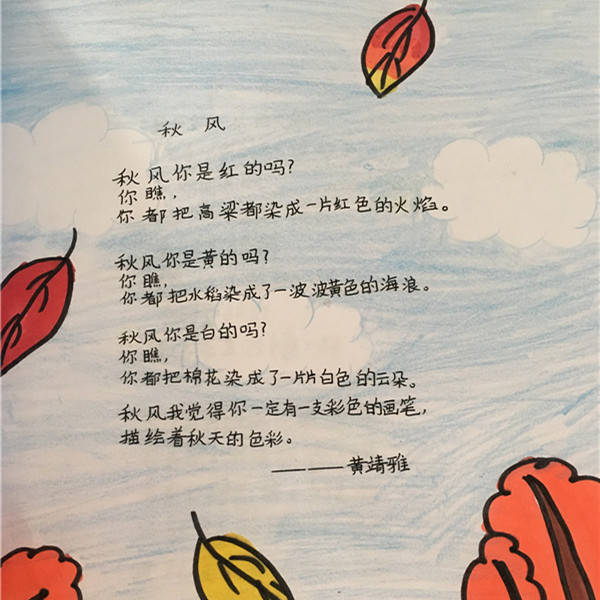 秋 风
秋风你是红的吗?
你瞧，
你都把高梁都染成一片红色的火焰。
秋风你是黄的吗?
你瞧，
你都把水稻染成了一波波黄色的海浪。
秋风你是白的吗?
你瞧，
你都把棉花染成了一片片白色的云朵。
秋风我觉得你一定有一支彩色的画笔，
描绘着秋天的色彩。
———黄靖雅